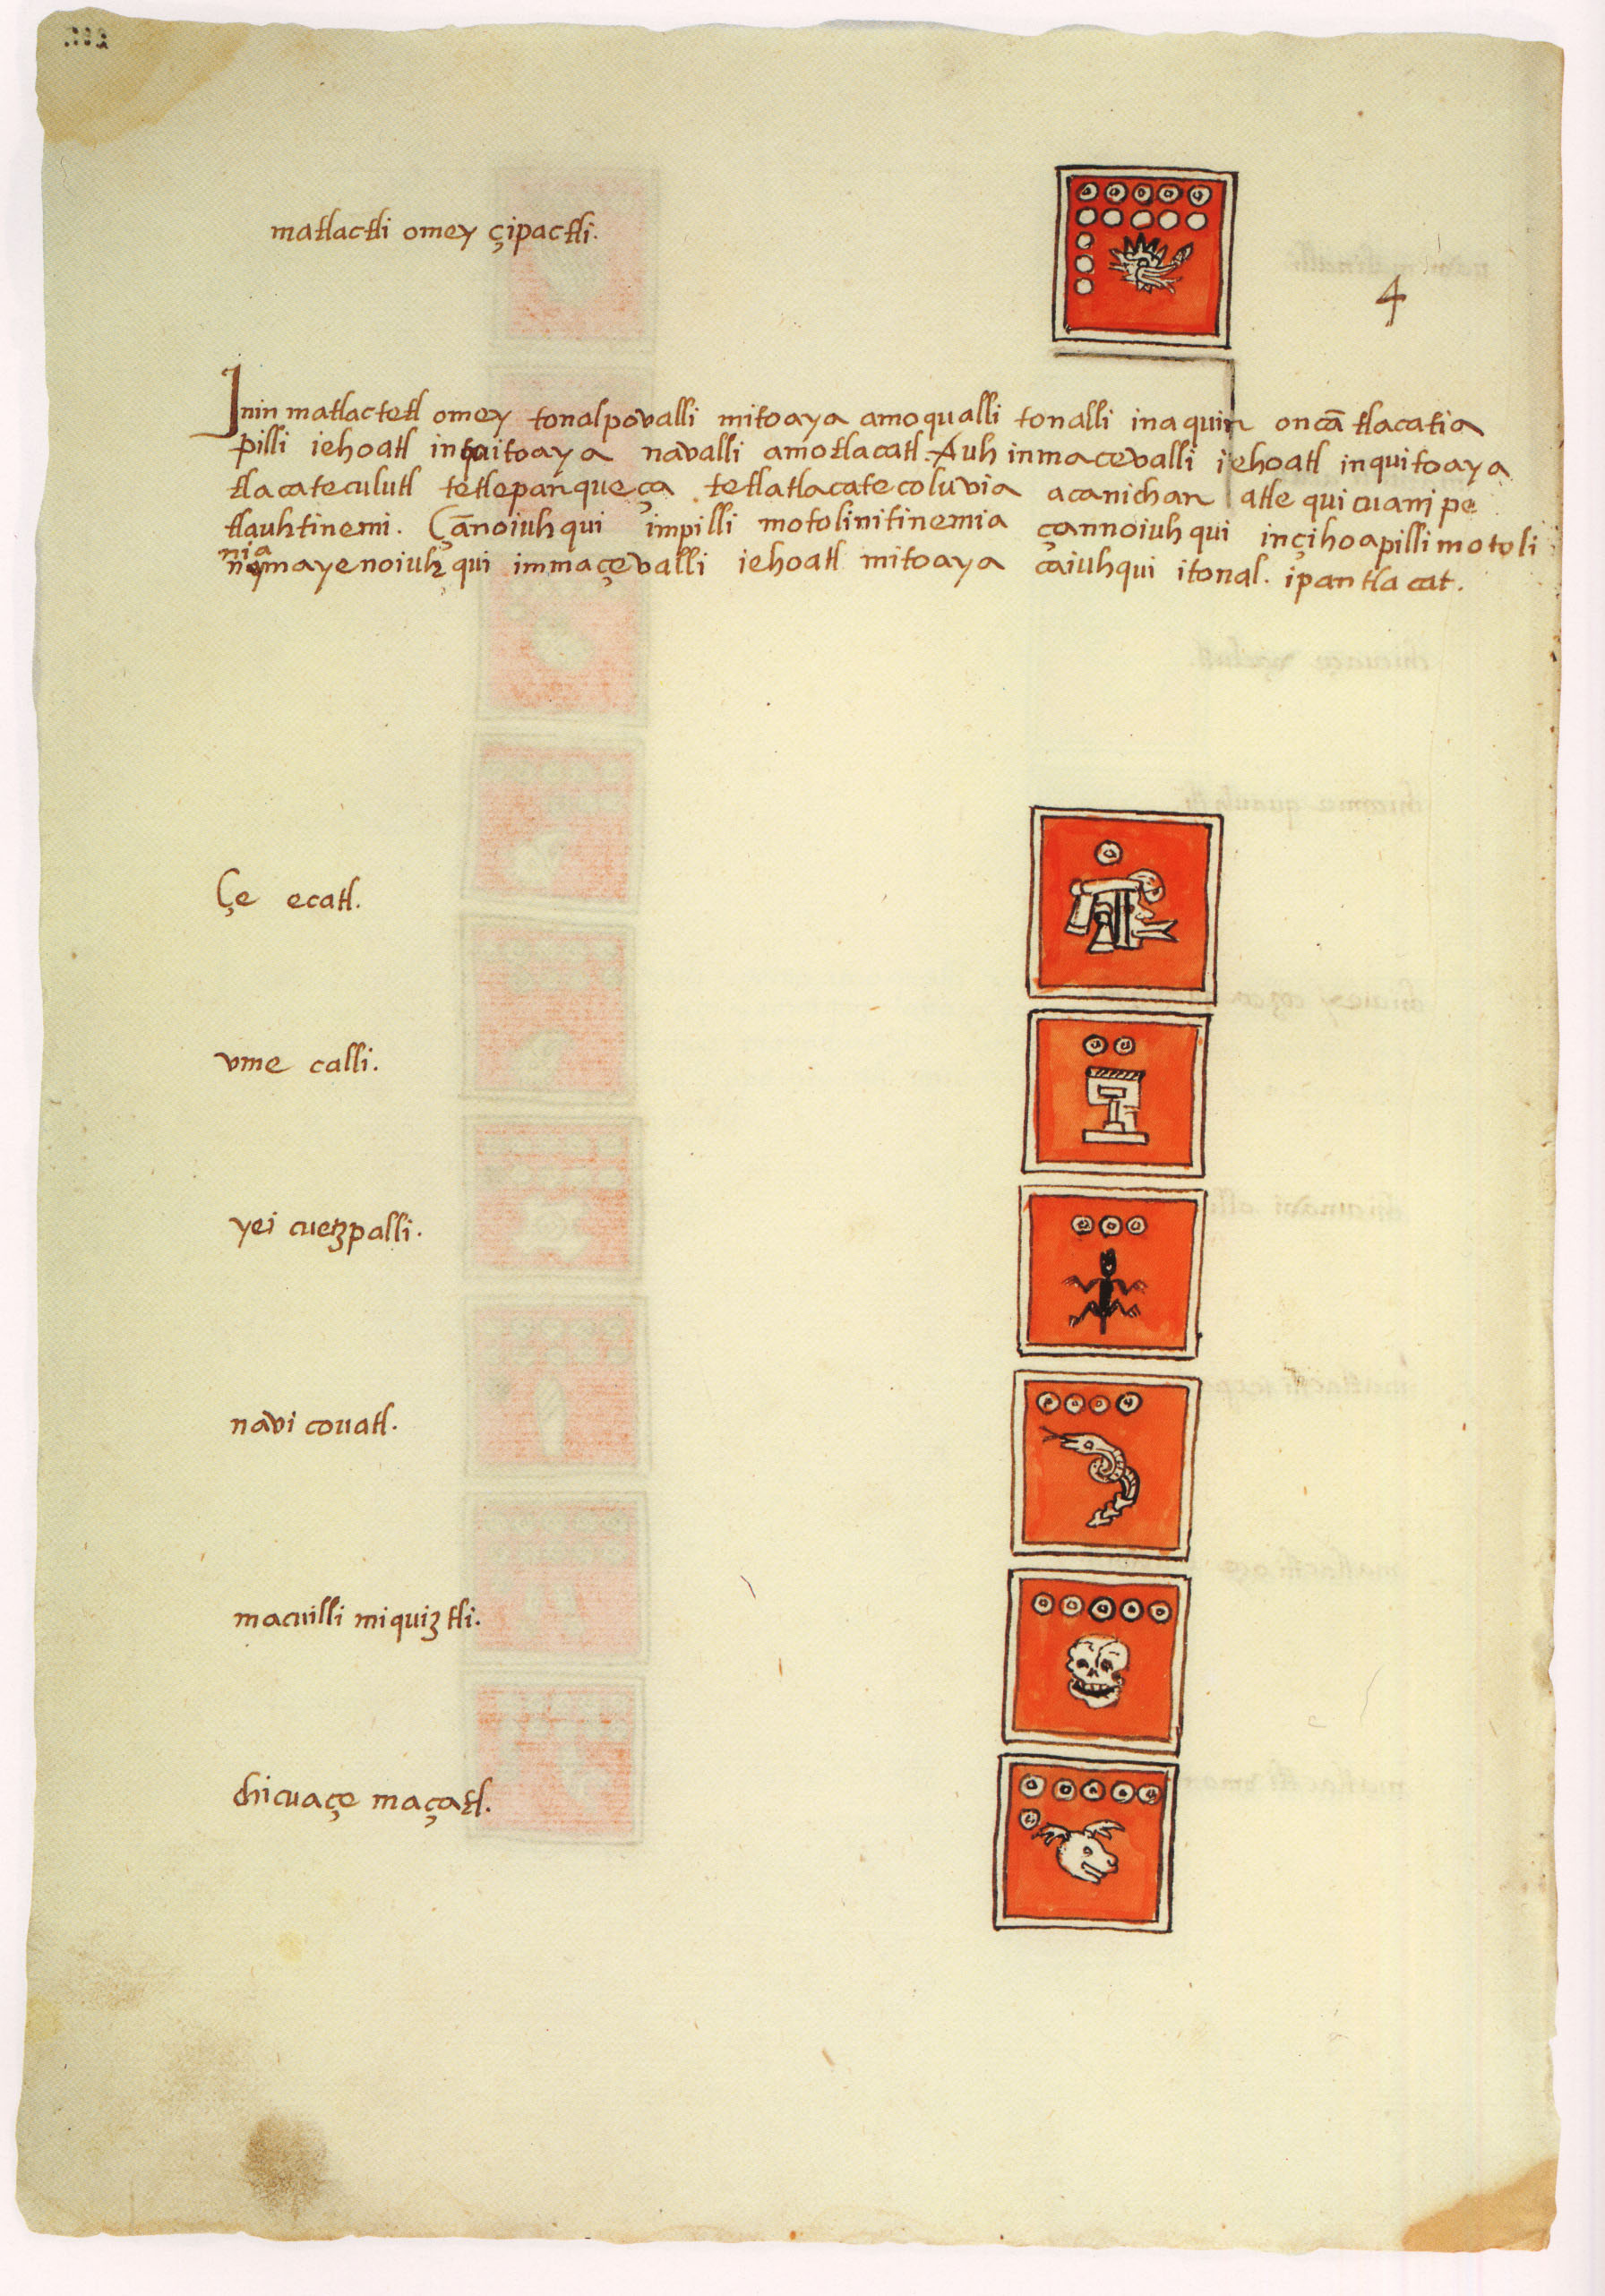 matlactli omey çipactli.
4
Inin matlactetl omey tonalpovalli mitoaya amoqualli tonalli inaquin oncā tlacatia
pilli iehoatl inquitoaya navalli amotlacatl. Auh inmacevalli iehoatl inquitoaya
tlacateculutl tetlepanqueça tetlatlacatecoluvia acanichan atle quicuani pe
tlauhtinemi. Çānoiuhqui impilli motolinitinemia çannoiuhqui inçihoapilli motoli
nia
mayenoiuhqui immaçevalli iehoatl mitoaya caiuhqui itonal. ipan tlacat.
Çe ecatl.
vme calli.
yei cuetzpalli.
navi covatl.
macuilli miquiztli.
chicuaçe maçatl.